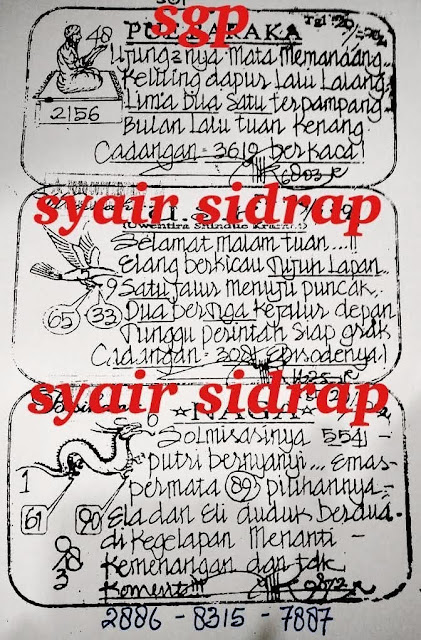 sgp
PUERAKA
48
Ujung3nya Mata Memandang..
Keliling dapur Lalu Lalang
Lima Dua Satu terpampang
2156
Bulan Lalu tuan Kenang
Cadangan = 3619 berkaca!
6803
syair sidrap
Selamat malam tuan...!!
Elang berkicau Tujuh Lapan..
9 Satu Jalur menuju puncak..
Dua bertiga Kejalur depan
65 33
Tunggu perintah siap grak
Cadangan = 3081 Episodenya!
syair sidrap
NAGA
6
Solmisasinya 5541 -
Putri bernyanyi... Emas-
1
permata 89 pilihannya -
61 90
Ela dan Eli duduk berdua-
di Kegelapan Menanti -
Kemenangan dan tak
3
Koment!!!
9872
2886 - 8315 - 7887